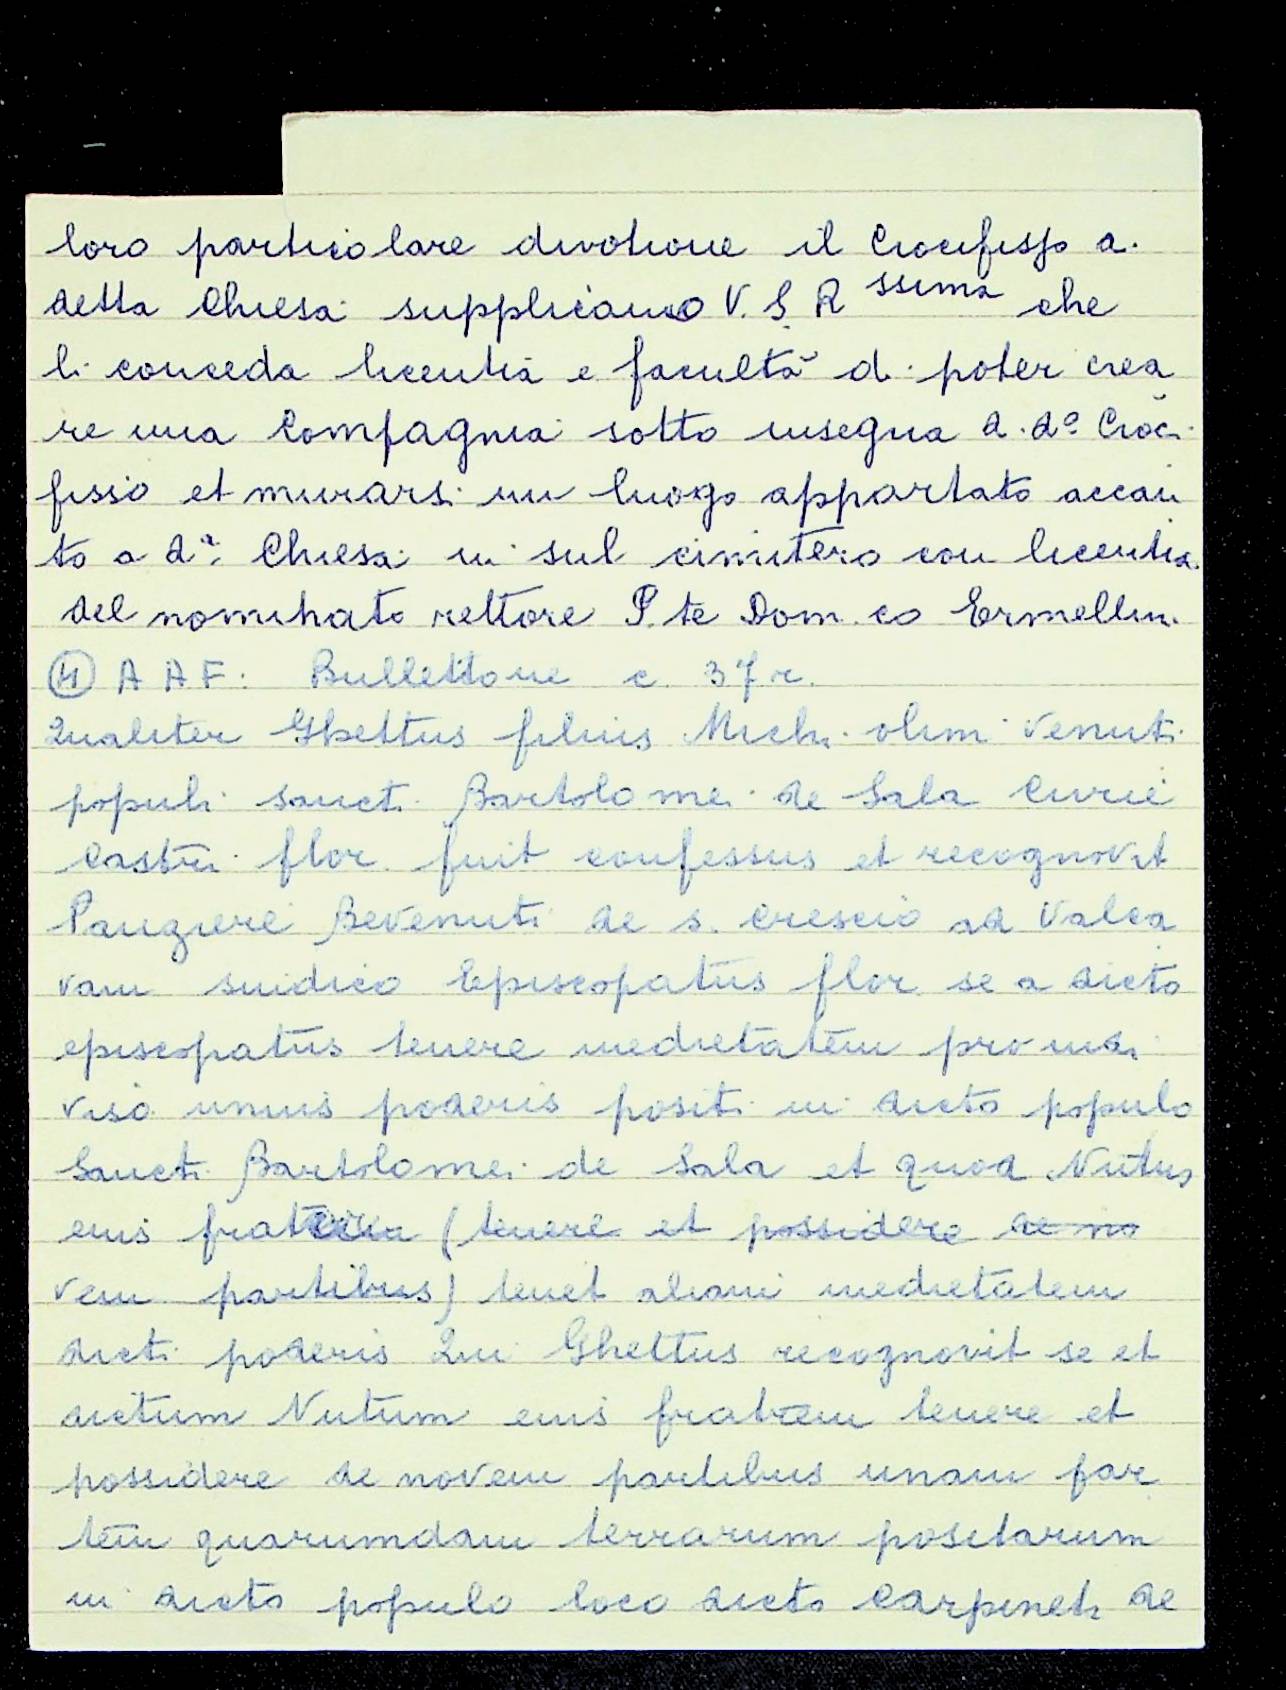 loro particolare divotione il Crocifisso a.
detta Chiesa supplicano V. S. R ssima che
li conceda licentia e facultà di poter crea
re una Compagnia sotto insegna d. d.º Croci
fisso et murarsi in luogo appartato accan
to a d.ª Chiesa in sul cimitero con licentia
del nominato rettore P. te Dom. co Ermellini
④ A A F: Bullettone c. 37 r.
Qualiter Ghettus filius Michi olim Venuti
populi sancti Bartolomei de Sala Curie
Castri flor. fuit confessus et recognovit
Rangiere Bevenuti de s. Crescio ad Valca
vam sindico Episcopatus flor. se a dicto
episcopatus tenere medietatem pro indi
viso unius poderis positi in dicto populo
Sancti Bartolomei de Sala et quod Nutus
eius frater (tenere et possidere de no
vem partibus) tenet aliam medietatem
dicti poderis Qui Ghettus recognovit se et
dictum Nutum eius fratrem tenere et
possidere de novem partibus unam par
tem quarumdam terrarum positarum
in dicto populo loco dicto Carpineti de